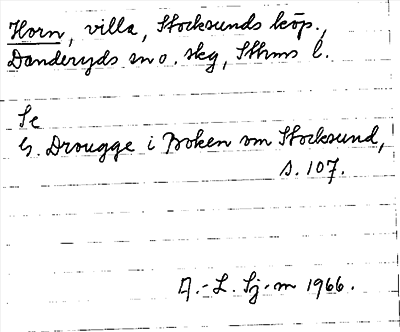 Horn, villa, Stocksunds köp.,
Danderyds sn o. skg, Sthms l.
Se
G. Drougge i Boken om Stocksund,
s. 107.
A.-L. Sj-m 1966.